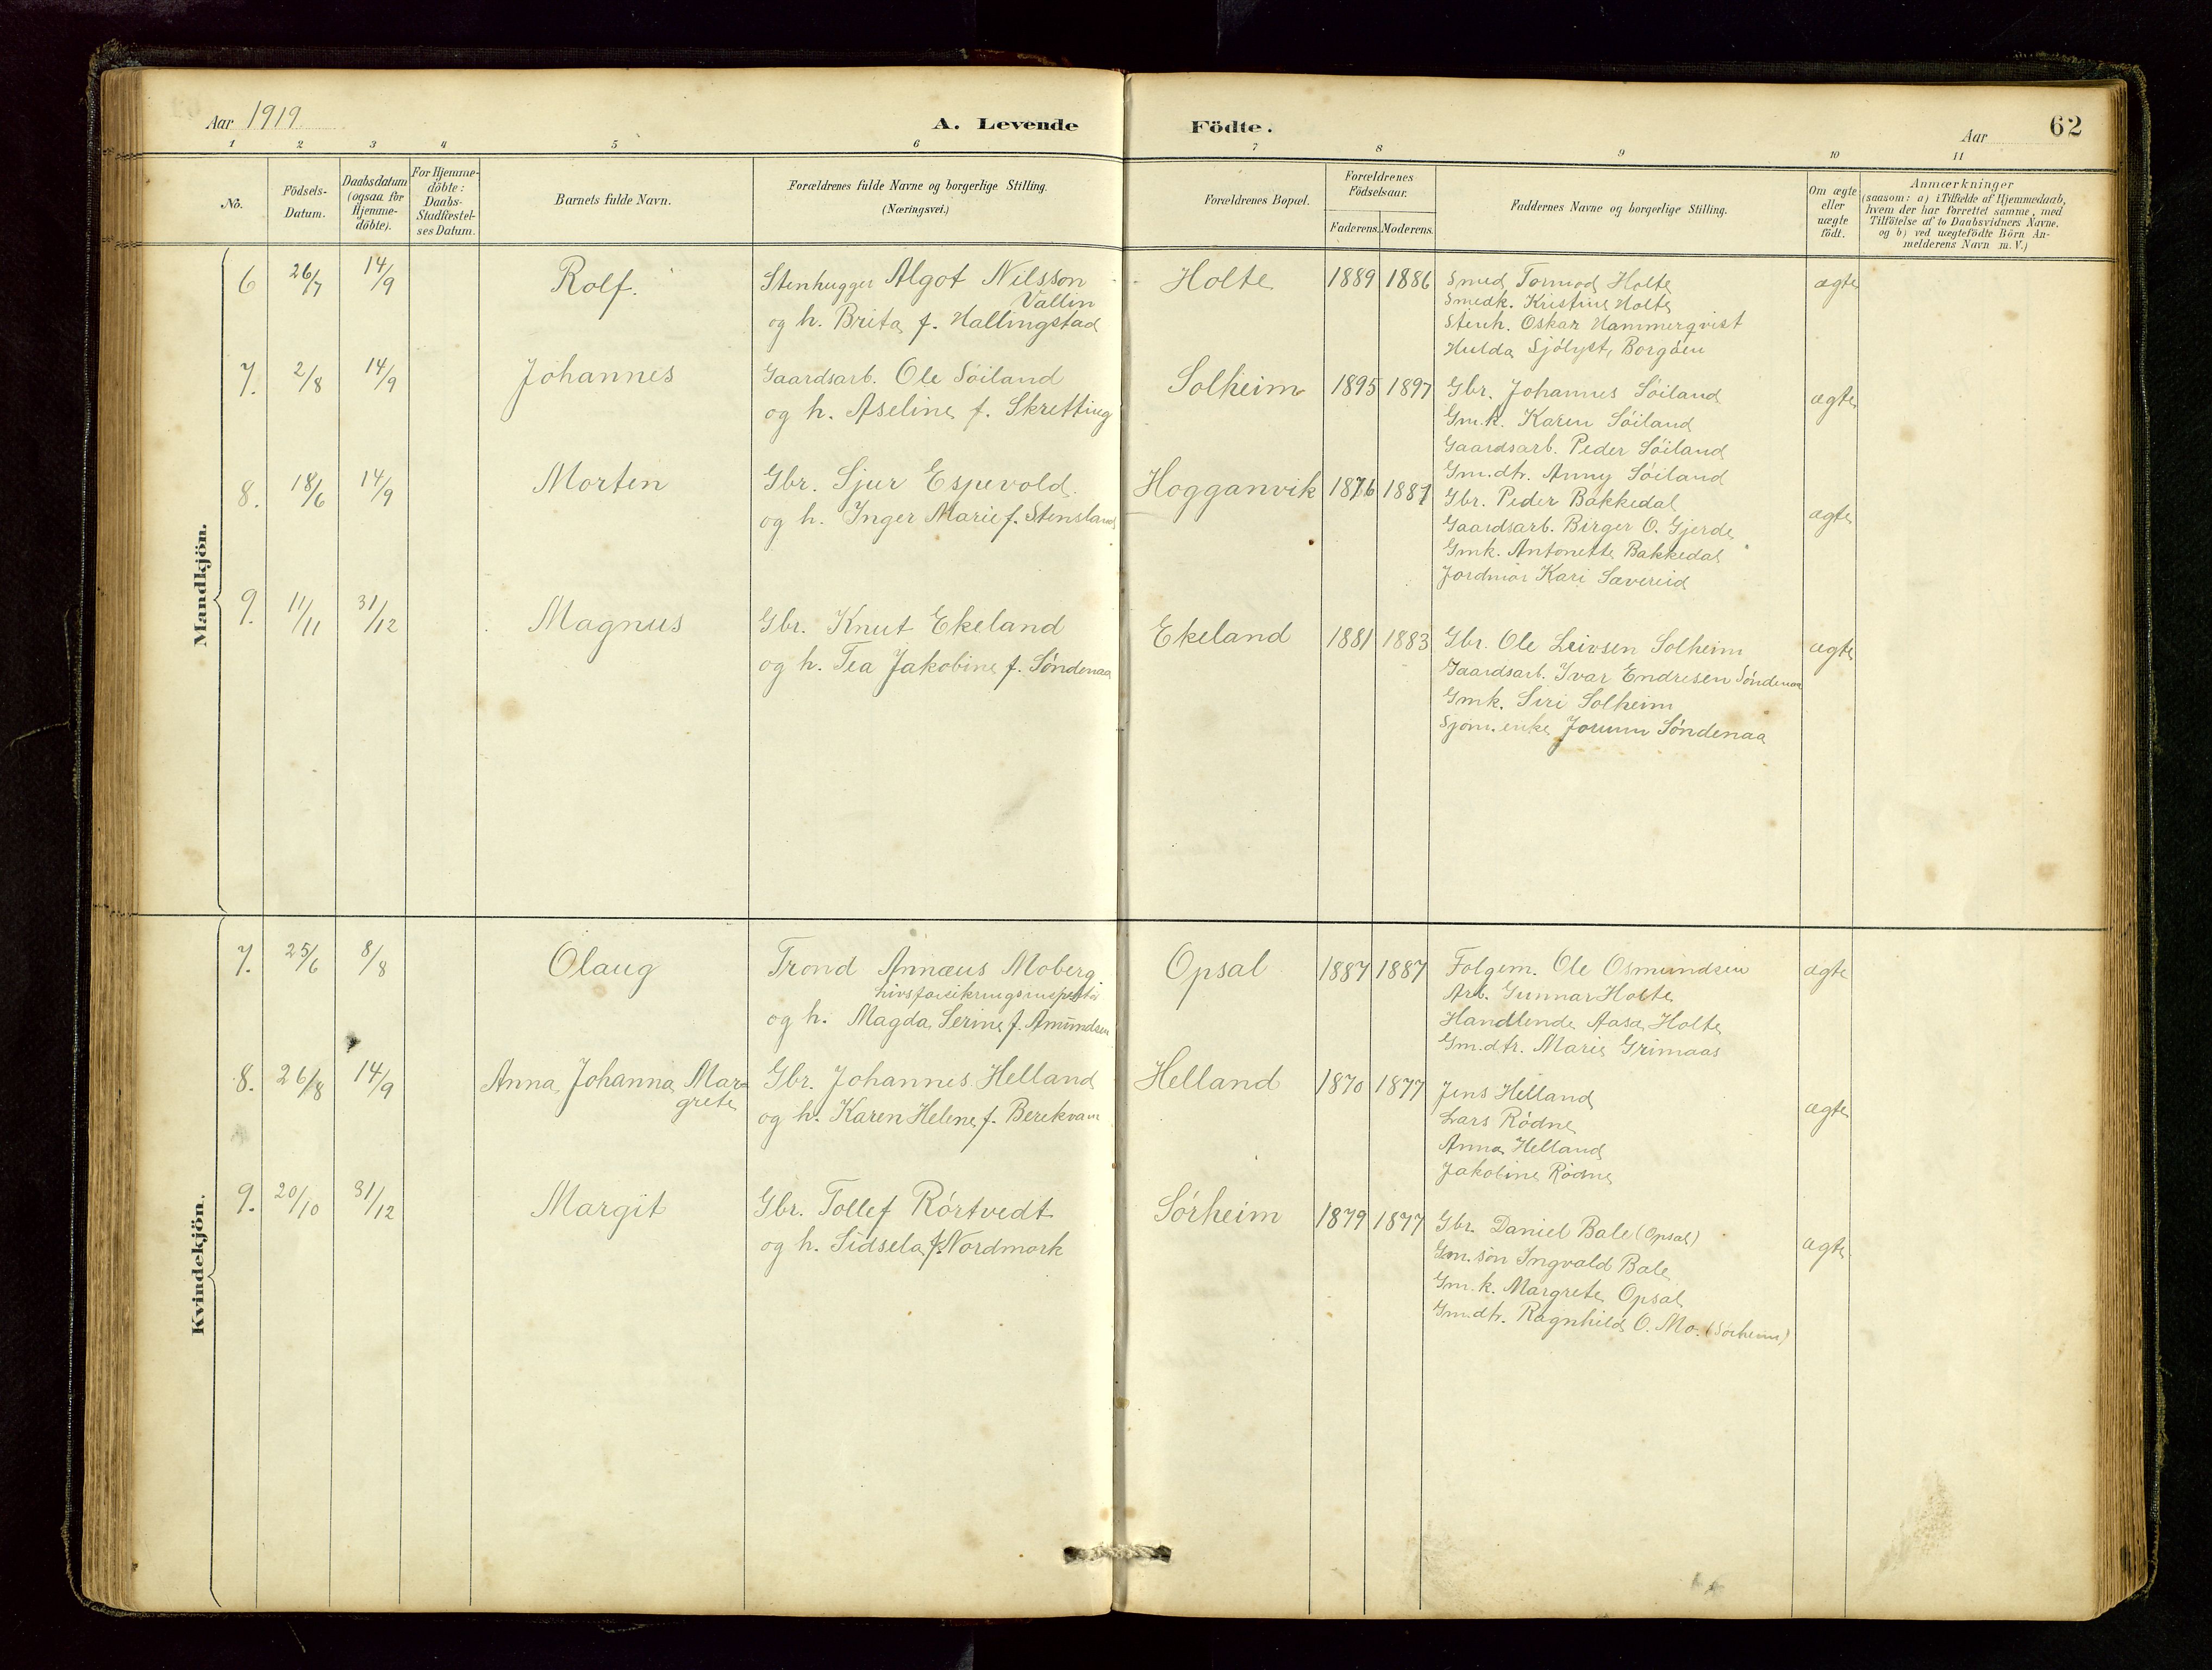 Aar 1919
A. Levende Födte.
Aar
62
1 2 3 4 5 6 7 8 9 10 11
No.
Födsels-Datum.
Daabsdatum (ogsaa for Hjemme-döbte).
For Hjemme-döbte: Daabs-Stadfæstel-ses Datum.
Barnets fulde Navn.
Forældrenes fulde Navne og borgerlige Stilling.
(Næringsvei.)
Forældrenes Bopæl.
Forældrenes Födselsaar.
Faderens. Moderens.
Faddernes Navne og borgerlige Stilling.
Om ægte eller uægte födt.
Anmærkninger
(saasom: a) i Tilfælde af Hjemmedaab,
hvem der har forrettet samme, med
Tilföielse af to Daabsvidners Navne,
og b) ved uægtefödte Börn An-
melderens Navn m. V.)
Mandkjön.
6 26/7 14/9 Rolf. Stenhugger Algot Nilsson Vallin
og h. Brita f. Hallingstad
Holte 1889 1886
Smed Tormod Holte
Smedk. Kristine Holte
Stenh. Oskar Hammerqvist
Hulda Sjölyst, Borgöen
ægte
7. 2/8 14/9 Johannes Gaardsarb. Ole Söiland
og h. Aseline f. Skretting
Solheim 1895 1897
Gbr. Johannes Söiland
Gm.k. Karen Söiland
Gaardsarb. Peder Söiland
Gm.dtr. Anny Söiland
ægte
8. 18/6 14/9 Morten Gbr. Sjur Espevold
og h. Inger Marie f. Stensland
Hogganvik 1876 1881
Gbr. Peder Bakkedal
Gaardsarb. Birger O. Gjerde
Gmk. Antonette Bakkedal
Jordmor Kari Sævereid
ægte
9. 11/11 31/12 Magnus Gbr. Knut Ekeland
og h. Tea Jakobine f. Söndenaa
Ekeland 1881 1883
Gbr. Ole Leivsen Solheim
Gaardsarb. Ivar Endresen Söndenaa
Gmk. Siri Solheim
Sjöm.enke Jorunn Söndenaa
ægte
Kvindekjön.
7. 25/6 8/8 Olaug Trond Annæus Moberg
livsforsikringsinspektör
og h. Magda Serine f. Amundsen
Opsal 1887 1887
Folgem. Ole Osmundsen
Arb. Gunnar Holte
Handlende Aasa Holte
Gm.dtr. Marie Grimaas
ægte
8. 26/8 14/9 Anna Johanna Mar-
grete
Gbr. Johannes Helland
og h. Karen Helene f. Berekvam
Helland 1870 1877
Jens Helland
Lars Rödne
Anna Helland
Jakobine Rödne
ægte
9. 20/10 31/12 Margit Gbr. Tollef Rörtvedt
og h. Sidsela f. Nordmork
Sörheim 1879 1877
Gbr. Daniel Bale (Opsal)
Gm.sön Ingvald Bale
Gm.k. Margrete Opsal
Gmdtr. Ragnhild O. Mo. (Sörheim)
ægte